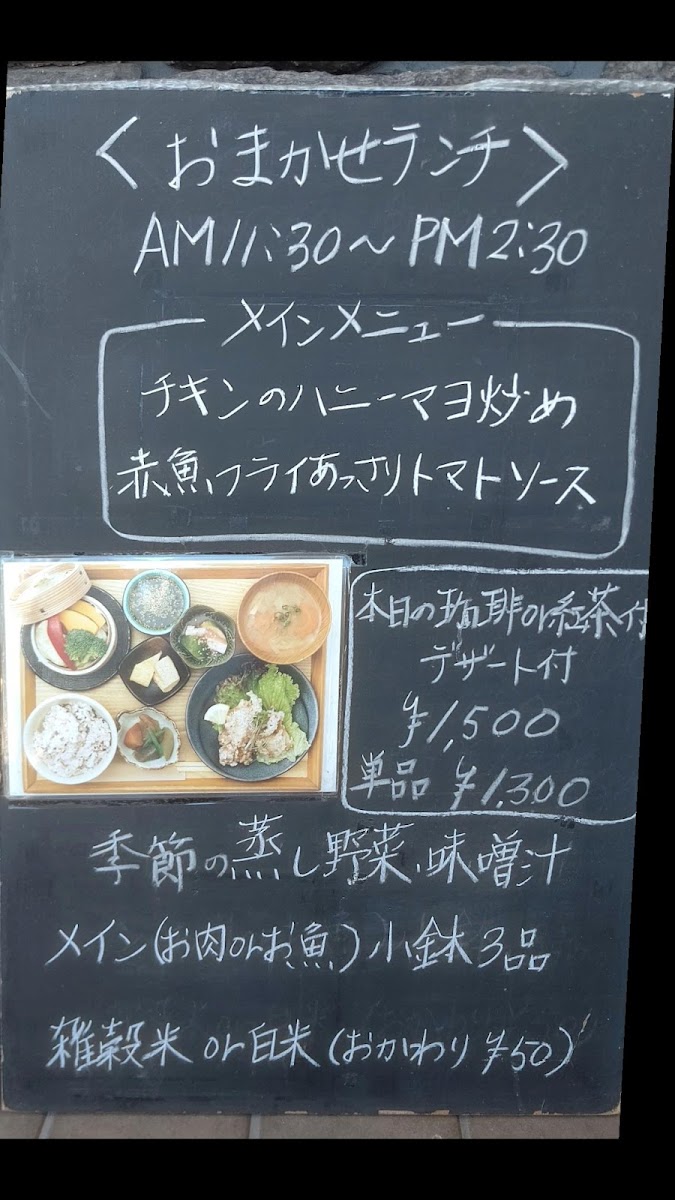 〈おまかせランチ〉
AM11:30〜PM2:30
メインメニュー
チキンのハニーマヨ炒め
赤魚フライあっさりトマトソース
本日の珈琲or紅茶付
デザート付
¥1,500
単品 ¥1,300
季節の蒸し野菜、味噌汁
メイン(お肉orお魚)小鉢3品
雑穀米 or 白米 (おかわり ¥50)